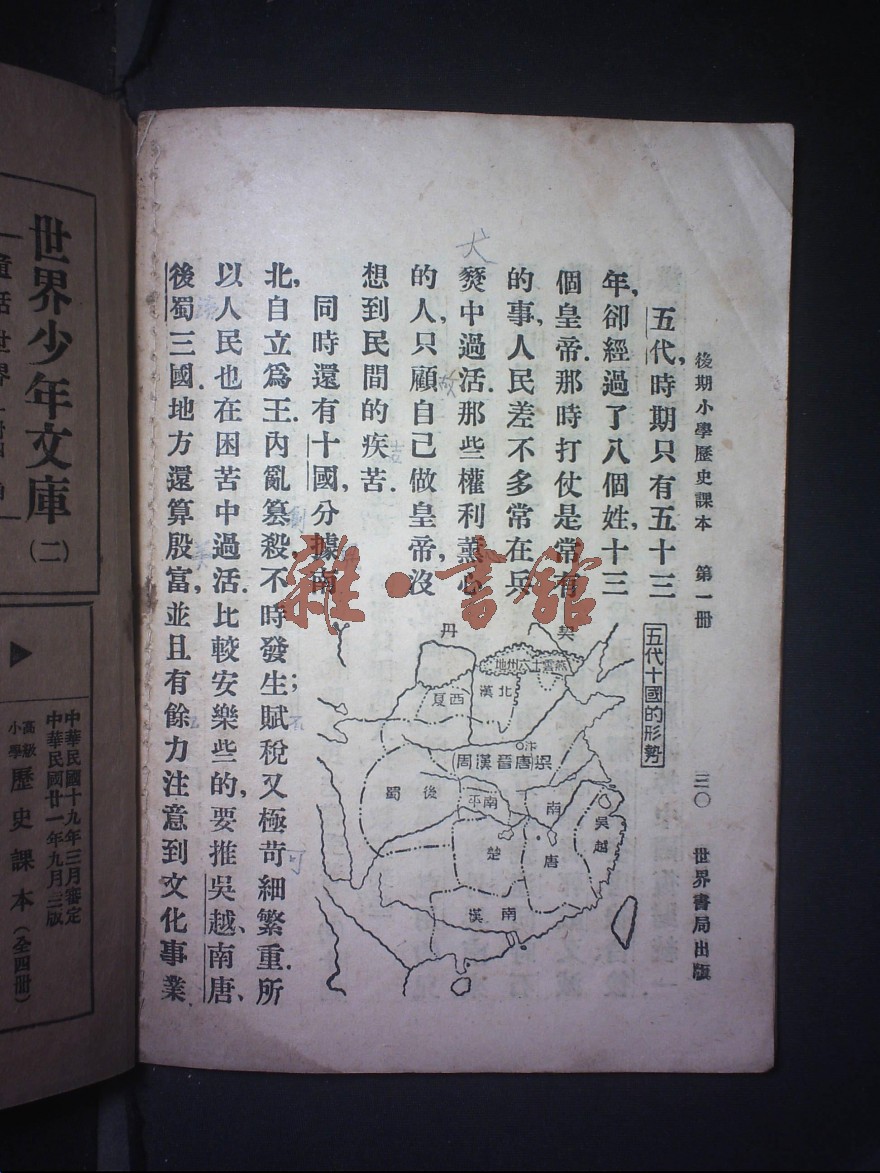 後期小學歷史課本 第一册 三〇 世界書局出版
五代時期只有五十三
年,卻經過了八個姓,十三
個皇帝.那時打仗是常有
的事,人民差不多常在兵
燹中過活.那些權利薰心
的人,只顧自己做皇帝,沒
想到民間的疾苦.
同時還有十國,分據南
北,自立爲王.內亂篡殺不時發生;賦稅又極苛細繁重.所
以人民也在困苦中過活.比較安樂些的,要推吳越、南唐、
後蜀三國地方還算殷富,並且有餘力注意到文化事業
五代十國的形勢
契丹
燕雲十六州地
北漢
西夏
汴
梁唐晉漢周
後蜀
南平
南唐
吳越
楚
南漢
犬
可
雜·書館
世界少年文庫(二)
中華民國十九年三月審定
中華民國廿一年九月三版
高級小學 歷史課本(全四冊)